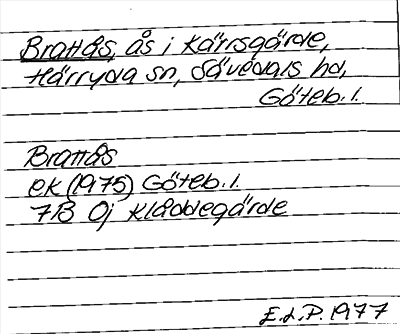 Brattås, ås i Kärrsgärde,
Härryda sn, Sävedals hd,
Göteb. l.
Brattås
ek (1975) Göteb. l.
7B 0j Kläddegärde
E.L.P. 1977